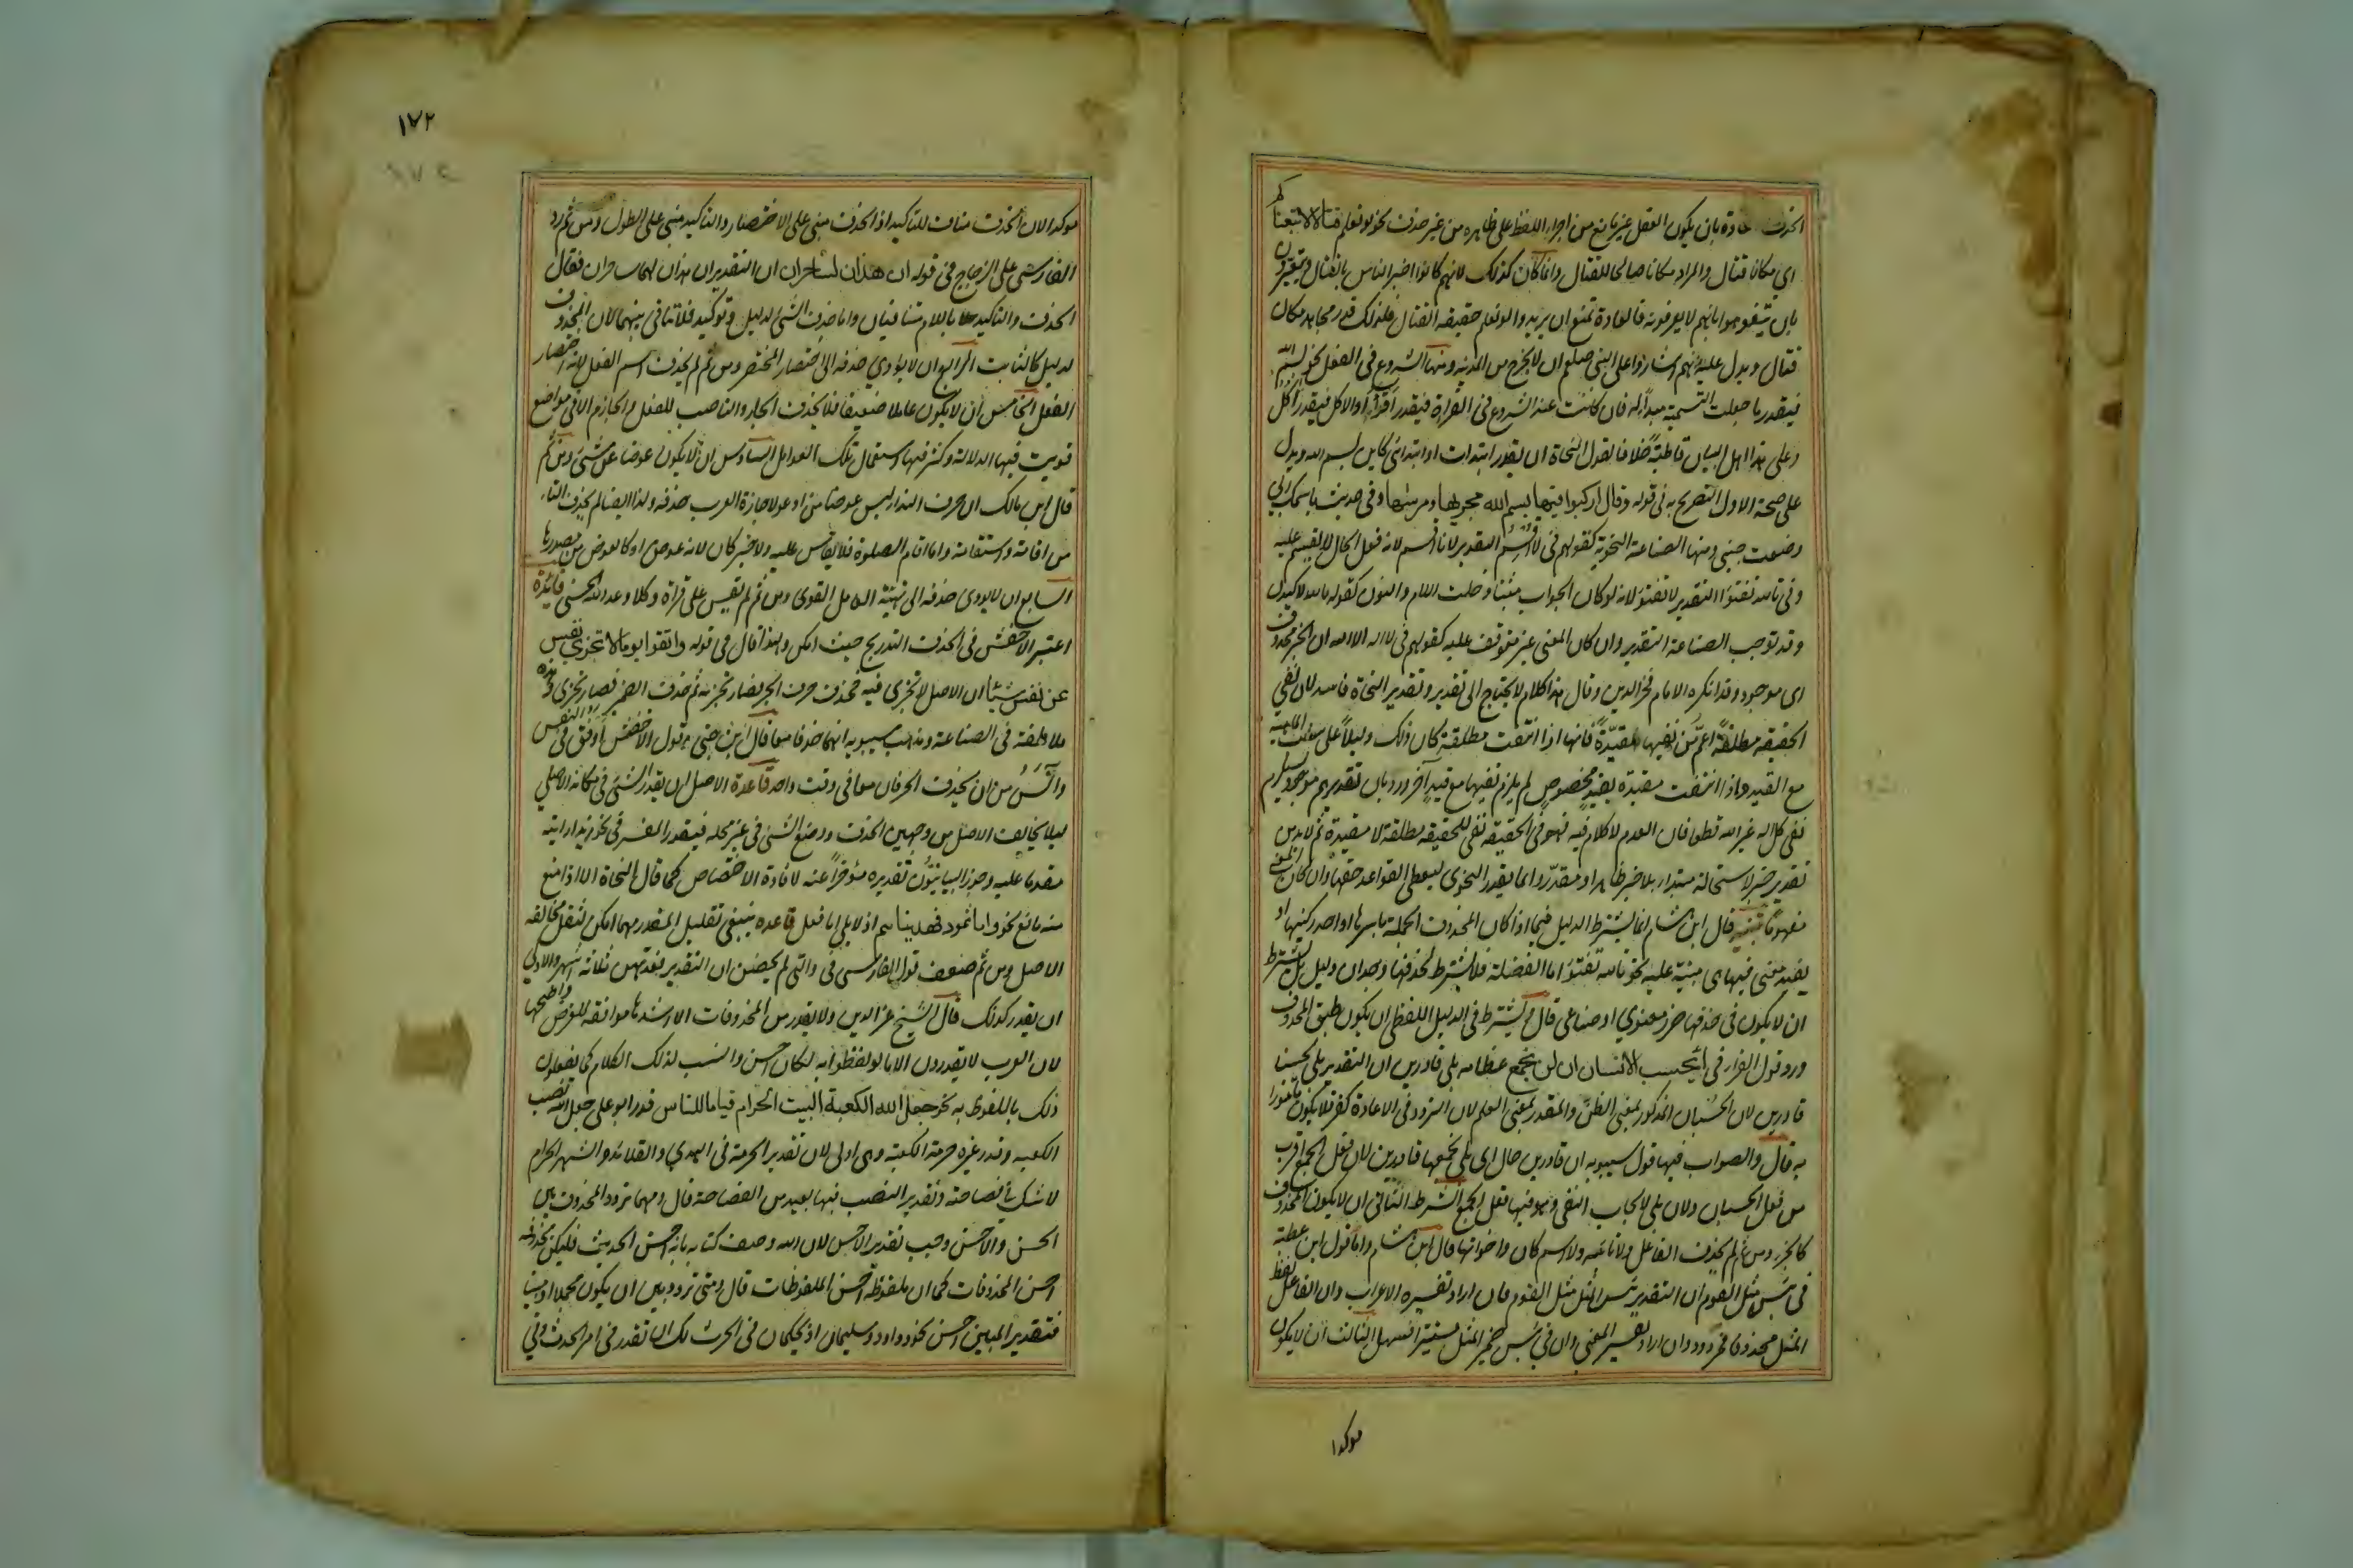 الحذف عادة بان يكون العقل غير مانع من اجراء اللفظ على ظاهره من غير حذف نحو لو نعلم قتالا لاتبعناكم
اى مكان قتال والمراد مكانا صالحا للقتال وانما كان كذلك لانهم كانوا اخبر الناس بالقتال ويتعيرون
بان يتفوهوا بانهم لا يعرفونه فالعادة تمنع ان يريدوا لو نعلم حقيقة القتال فلذلك قدر مجاهد مكان
قتال ويدل عليه انهم اشاروا على النبى صلعم ان لا يخرج من المدينة ومنها الشروع فى الفعل نحو بسم الله
فيقدر ما جعلت التسمية مبدأ له فان كانت عند الشروع فى القراة فيقدر اقرأ او الاكل فيقدر آكل
وعلى هذا اهل البيان قاطبة خلافا لقول النحاة ان يقدر ابتدات او ابتدائى كاين بسم الله ويدل
على صحة الاول التصريح به فى قوله وقال اركبوا فيها بسم الله مجريها ومرسيها وفى حديث باسمك ربى
وضعت جنبى ومنها الصناعة النحوية كقولهم فى لا اقسم التقدير لانا اقسم لان فعل الحال لا يقسم عليه
وفى تالله تفتؤا التقدير لا تفتؤ لانه لو كان الجواب مثبتا دخلت اللام والنون كقوله تالله لاكيدن
وقد توجب الصناعة التقدير وان كان المعنى غير متوقف عليه كقولهم فى لا اله الا الله ان الخبر محذوف
اى موجود وقد انكره الامام فخر الدين وقال هذا كلام لا يحتاج الى تقدير وتقدير النحاة فاسد لان نفى
الحقيقة مطلقة اعم من نفيها مقيدة فانها اذا انتفت مطلقة كان ذلك دليلا على سلب الماهية
مع القيد واذا انتفت مقيدة بقيد مخصوص لم يلزم نفيها مع قيد آخر ورد بان تقديرهم موجود يستلزم
نفى كل اله غير الله قطعا فان العدم لا كلام فيه فهو فى الحقيقة نفى للحقيقة مطلقة لا مقيدة ثم لا بد من
تقدير خبر لاستحالة مبتدا بلا خبر ظاهرا او مقدر وانما يقدر النحوى ليعطى القواعد حقها وان كان المعنى
مفهوما تنبيه قال ابن هشام انما يشترط الدليل فيما اذا كان المحذوف الجملة باسرها او احد ركنيها او
يفيد معنى فيها هى مبنية عليه نحو تالله تفتؤ اما الفضلة فلا يشترط لحذفها وجدان دليل بل يشترط
ان لا يكون فى حذفها ضرر معنوى او صناعى قال ويشترط فى الدليل اللفظى ان يكون طبق المحذوف
ورد قول الفراء فى ايحسب الانسان ان لن نجمع عظامه بلى قادرين ان التقدير بلى ليحسبنا
قادرين لان الحسبان المذكور بمعنى الظن والمقدر بمعنى العلم لان التردد فى الاعادة كفر فلا يكون مامورا
به قال والصواب فيها قول سيبويه ان قادرين حال اى بلى نجمعها قادرين لان فعل الجمع اقرب
من فعل الحسبان ولان بلى لايجاب النفى وهو فيها فعل الجمع الشرط الثانى ان لا يكون المحذوف
كالجزء ومن ثم لم يحذف الفاعل ولا نائبه ولا اسم كان واخواتها قال ابن هشام واما قول ابن عطية
فى بئس مثل القوم ان التقدير بئس المثل مثل القوم فان اراد تفسيره الاعراب وان الفاعل لفظ
المثل محذوفا فمردود وان اراد تفسير المعنى وان فى بئس ضمير المثل مستترا فسهل الثالث ان لا يكون
موكدا
١٧٢
موكدا لان الحذف مناف للتاكيد اذ الحذف مبنى على الاختصار والتاكيد مبنى على الطول ومن ثم رد
الفارسى على الزجاج فى قوله ان هذان لساحران ان التقدير ان هذان لهما ساحران فقال
الحذف والتاكيد باللام متنافيان واما حذف الشئ لدليل وتوكيده فلا تنافى بينهما لان المحذوف
لدليل كالثابت الرابع ان لا يؤدى حذفه الى اختصار المختصر ومن ثم لم يحذف اسم الفعل لانه اختصار
الفعل الخامس ان لا يكون عاملا ضعيفا فلا يحذف الجار والناصب للفعل والجازم الا فى مواضع
قويت فيها الدلالة وكثر فيها استعمال تلك العوامل السادس ان لا يكون عوضا عن شئ ومن ثم
قال ابن مالك ان حرف النداء ليس عوضا من ادعو لاجازة العرب حذفه ولذا ايضا لم يحذف التاء
من اقامة واستقامة واما اقام الصلوة فلا يقاس عليه ولا خبر كان لانه عوض او كالعوض من مصدرها
السابع ان لا يودى حذفه الى تهيئة العامل القوى ومن ثم لم يقس على قراة وكلا وعد الله الحسنى فائدة
اعتبر الاخفش فى الحذف التدريج حيث امكن ولهذا قال فى قوله واتقوا يوما لا تجزى نفس
عن نفس شيئا ان الاصل لا تجزى فيه فحذف حرف الجر فصار تجزيه ثم حذف الضمير فصار تجزى وهذه
ملاطفة فى الصناعة ومذهب سيبويه انهما حذفا معا قال ابن جنى وقول الاخفش اوفق فى النفس
وآنس من ان يحذف الحرفان معا فى وقت واحد قاعدة الاصل ان يقدر الشئ فى مكانه الاصلى
ليلا يخالف الاصل من وجهين الحذف ووضع الشئ فى غير محله فيقدر المفسر فى نحو زيدا رايته
مقدما عليه وجوز البيانيون تقديره مؤخرا عنه لافادة الاختصاص كما قال النحاة الا اذا منع
منه مانع نحو واما ثمود فهديناهم اذ لا يلى اما فعل قاعده ينبغى تقليل المقدر مهما امكن لتقل مخالفه
الاصل ومن ثم ضعف قول الفارسى فى واللائى لم يحضن ان التقدير فعدتهن ثلاثة اشهر والاولى
ان يقدر كذلك قال الشيخ عز الدين ولا يقدر من المحذوفات الا اشدها موافقة للغرض وافصحها
لان العرب لا يقدرون الا ما لو لفظوا به لكان احسن وانسب لذلك الكلام كما يفعلون
ذلك بالملفوظ به نحو جعل الله الكعبة البيت الحرام قياما للناس قدر ابو على جعل الله نصب
الكعبه وقدر غيره حرمة الكعبة وهو اولى لان تقدير الحرمة فى الهدى والقلائد والشهر الحرام
لا شك فى فصاحته وتقدير النصب فيها بعيد من الفصاحة قال ومهما تردد المحذوف بين
الحسن والاحسن وجب تقدير الاحسن لان الله وصف كتابه بانه احسن الحديث فليكن محذوفه
احسن المحذوفات كما ان ملفوظه احسن الملفوظات قال ومتى تردد بين ان يكون مجملا او مبينا
فتقدير المبين احسن نحو وداود وسليمان اذ يحكمان فى الحرث لك ان تقدر فى امر الحرث وفى